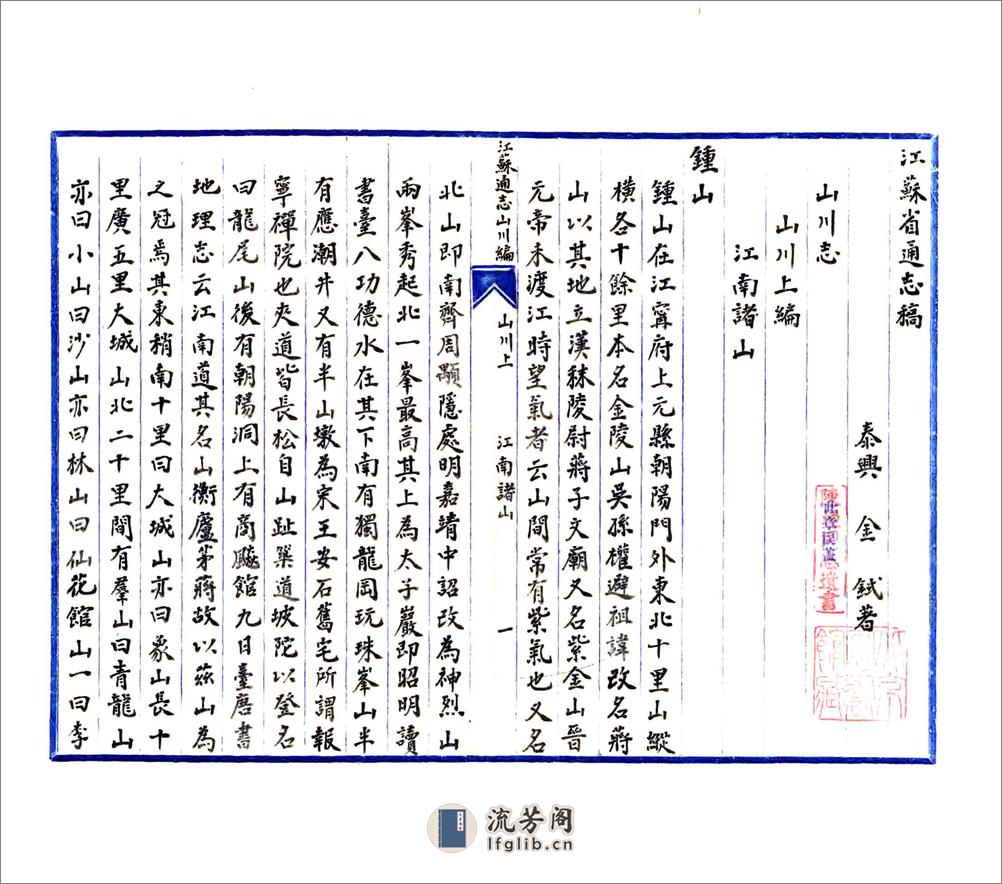 江蘇省通志稿
泰興 金 鉽著
山川志
山川上編
江南諸山
鍾山
鍾山在江甯府上元縣朝陽門外東北十里山縱
橫各十餘里本名金陵山吳孫權避祖諱改名蔣
山以其地立漢秣陵尉蔣子文廟又名紫金山晉
元帝未渡江時望氣者云山間常有紫氣也又名
江蘇通志山川編 山川上 江南諸山 一
北山即南齊周顒隱處明嘉靖中詔改為神烈山
兩峯秀起北一峯最高其上為太子巖即昭明讀
書臺八功德水在其下南有獨龍岡玩珠峯山半
有應潮井又有半山墩為宋王安石舊宅所謂報
寧禪院也夾道皆長松自山趾築道坡陀以登名
曰龍尾山後有朝陽洞上有商飈館九日臺唐書
地理志云江南道其名山衡廬茅蔣故以茲山為
之冠焉其東稍南十里曰大城山亦曰象山長十
里廣五里大城山北二十里間有羣山曰青龍山
亦曰小山曰沙山亦曰林山曰仙花館山一曰李
遺書
流芳阁
lfglib.cn